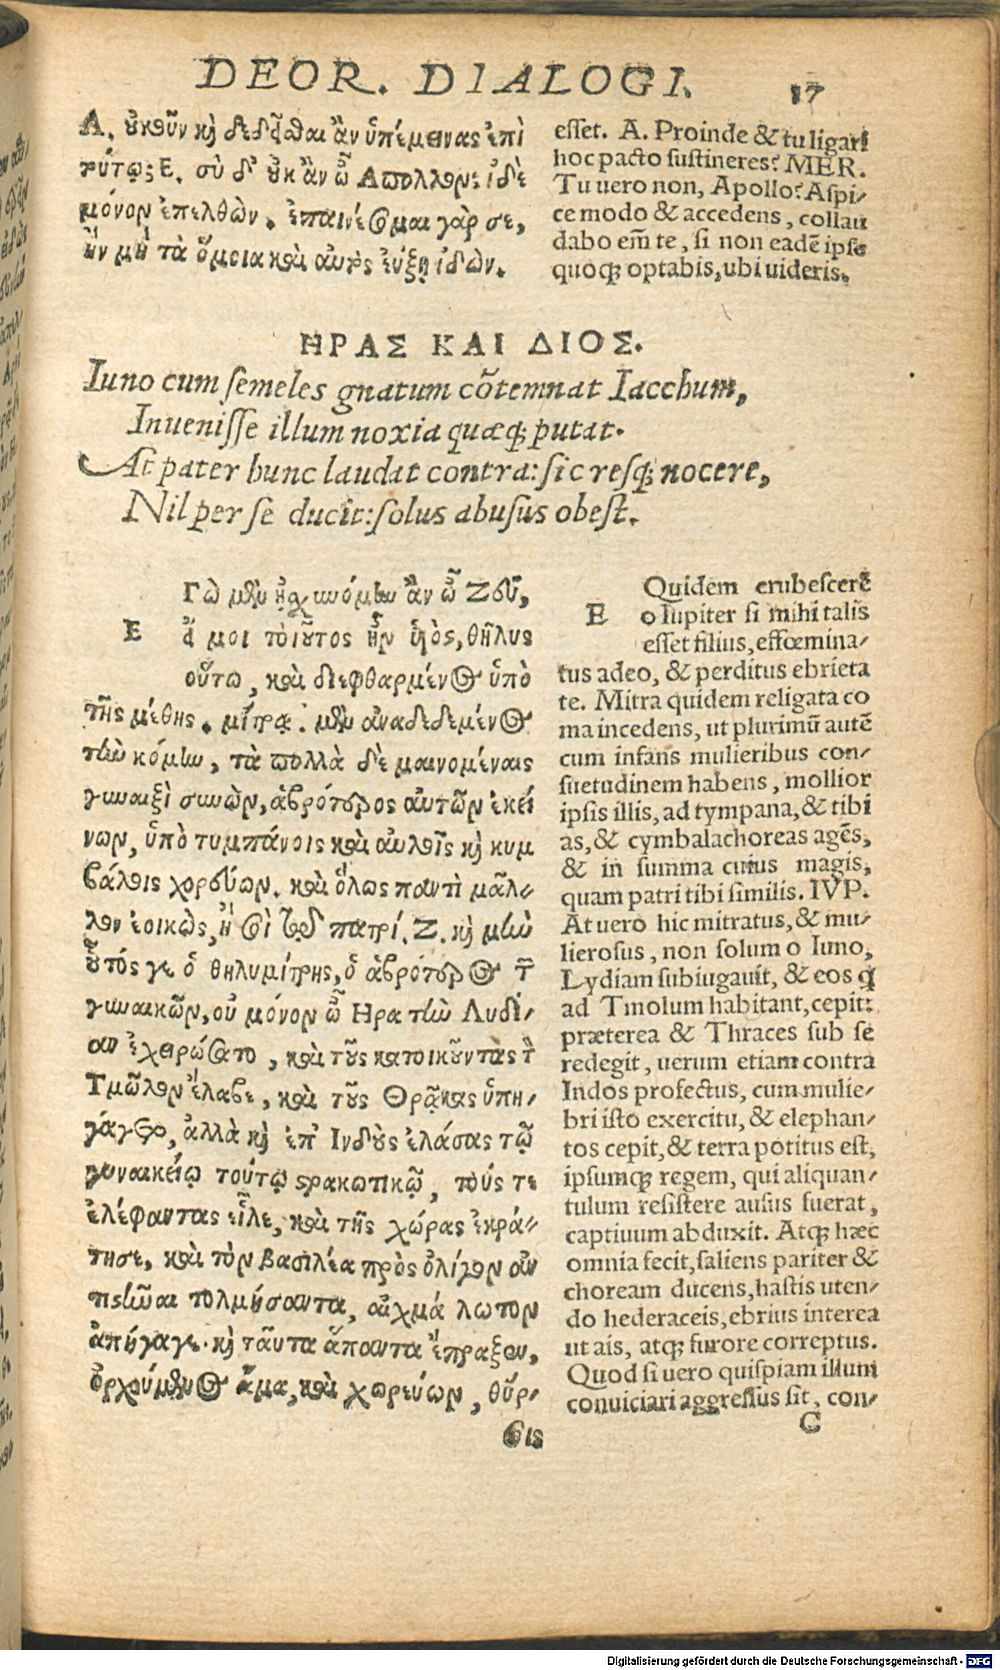 DEOR. DIALOGI. 17
Α. οὐκοῦν καὶ δεδέσθαι ἂν ὑπέμεινας ἐπὶ
τούτῳ; Ε. σὺ δ' οὐκ ἂν ὦ Απολλον; ἰδὲ
μόνον ἐπελθὼν. ἐπαινέσομαι γάρ σε,
ἢν μὴ τὰ ὅμοια καὶ αὐτὸς εὔξῃ ἰδών.
esset. A. Proinde & tu ligari
hoc pacto sustineres? MER.
Tu uero non, Apollo? Aspi-
ce modo & accedens, collau
dabo em̃ te, si non eadē ipse
quoqꝫ optabis, ubi uideris.
ΗΡΑΣ ΚΑΙ ΔΙΟΣ.
Iuno cum semeles gnatum cōtemnat Iacchum,
Inuenisse illum noxia quæqꝫ putat.
At pater hunc laudat contra: sic resqꝫ nocere,
Nil per se ducit: solus abusus obest.
Εγὼ μὲν ᾐσχυνόμην ἂν ὦ Ζεῦ,
εἴ μοι τοιοῦτος ἦν υἱὸς, θῆλυς
οὕτω, καὶ διεφθαρμένος ὑπὸ
τῆς μέθης. μίτρᾳ μὲν ἀναδεδεμένος
τὴν κόμην, τὰ πολλὰ δὲ μαινομέναις
γυναιξὶ συνὼν, ἁβρότερος αὐτῶν ἐκεί
νων, ὑπὸ τυμπάνοις καὶ αὐλοῖς καὶ κυμ
βάλοις χορεύων. καὶ ὅλως παντὶ μᾶλ-
λον ἐοικὼς, ἢ σοὶ τῷ πατρί. Ζ. καὶ μὴν
οὗτός γε ὁ θηλυμίτρης, ὁ ἁβρότερος τῶν
γυναικῶν, οὐ μόνον ὦ Ηρα τὴν Λυδί-
αν ἐχειρώσατο, καὶ τοὺς κατοικοῦντας τὸν
Τμῶλον ἔλαβε, καὶ τοὺς Θρᾷκας ὑπη-
γάγετο, ἀλλὰ καὶ ἐπ' Ινδοὺς ἐλάσας τῷ
γυναικείῳ τούτῳ στρατιωτικῷ, τούς τε
ἐλέφαντας εἷλε, καὶ τῆς χώρας ἐκρά-
τησε, καὶ τὸν βασιλέα πρὸς ὀλίγον ἀν
τιστῆναι τολμήσαντα, αἰχμάλωτον
ἀπήγαγε. καὶ ταῦτα ἅπαντα ἔπραξεν,
ὀρχούμενος ἅμα, καὶ χορεύων, θύρ-
σοις
EQuidem erubescerē
o Iupiter si mihi talis
esset filius, effœmina-
tus adeo, & perditus ebrieta
te. Mitra quidem religata co
ma incedens, ut plurimū autē
cum infans mulieribus con-
suetudinem habens, mollior
ipsis illis, ad tympana, & tibi
as, & cymbala choreas agēs,
& in summa cuius magis,
quam patri tibi similis. IVP.
At uero hic mitratus, & mu-
lierosus, non solum o Iuno,
Lydiam subiugauit, & eos q̃
ad Tmolum habitant, cepit:
præterea & Thraces sub se
redegit, uerum etiam contra
Indos profectus, cum mulie-
bri isto exercitu, & elephan-
tos cepit, & terra potitus est,
ipsumqꝫ regem, qui aliquan-
tulum resistere ausus fuerat,
captiuum abduxit. Atqꝫ hæc
omnia fecit, saliens pariter &
choream ducens, hastis uten-
do hederaceis, ebrius interea
ut ais, atqꝫ furore correptus.
Quod si uero quispiam illum
conuiciari aggressus sit, con-
C
Digitalisierung gefördert durch die Deutsche Forschungsgemeinschaft - DFG